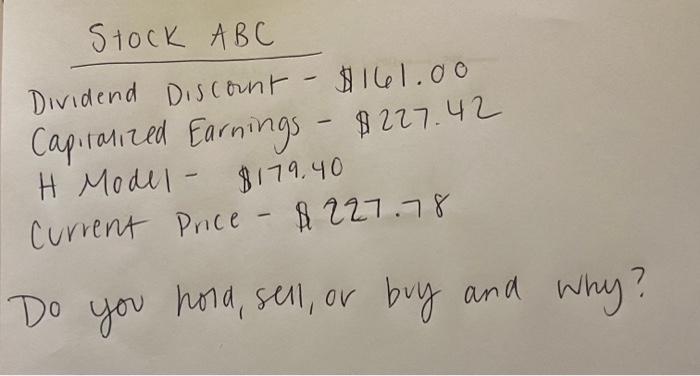 Stock ABC
Dividend Discount - $161.00
Capitalized Earnings - $227.42
H Model - $179.40
Current Price - $227.78
Do you hold, sell, or buy and why?